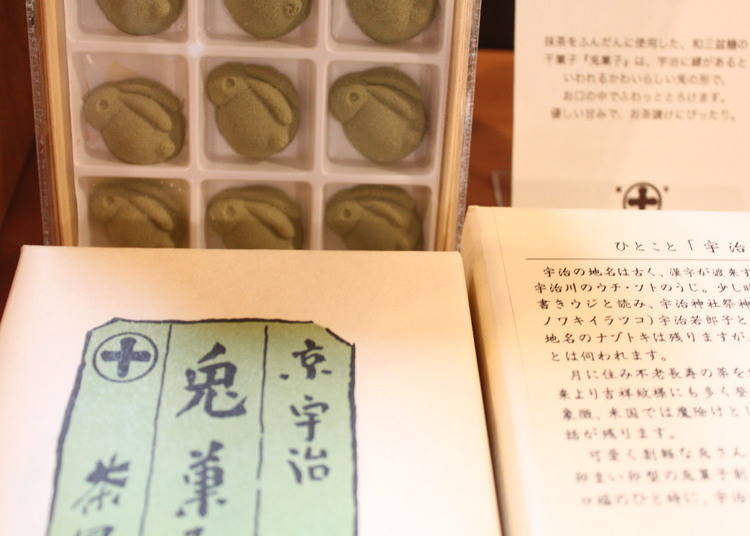 抹茶をふんだんに使用した、和三盆糖の
干菓子『兎菓子』は、宇治に縁があると
いわれるかわいらしい兎の形で、
お口の中でふわっととろけます。
優しい甘みで、お茶請けにぴったり。
京宇治
兎菓
茶
ひとこと「宇治
宇治の地名は古く、漢字が渡来す
宇治川のウチ・ソトのうじ。少し
書きウジと読み、宇治神社祭神
ノワキイラツコ)宇治若郎子と
地名のナゾトキは残りますが、
とは伺われます。
月に住み不老長寿の茶を
来より吉祥紋様にも多く登
象徴、米国では魔除けとし
話が残ります。
可愛く剽軽な兎さん
卵まい卵型の兎菓子
口福のひと時に、宇治